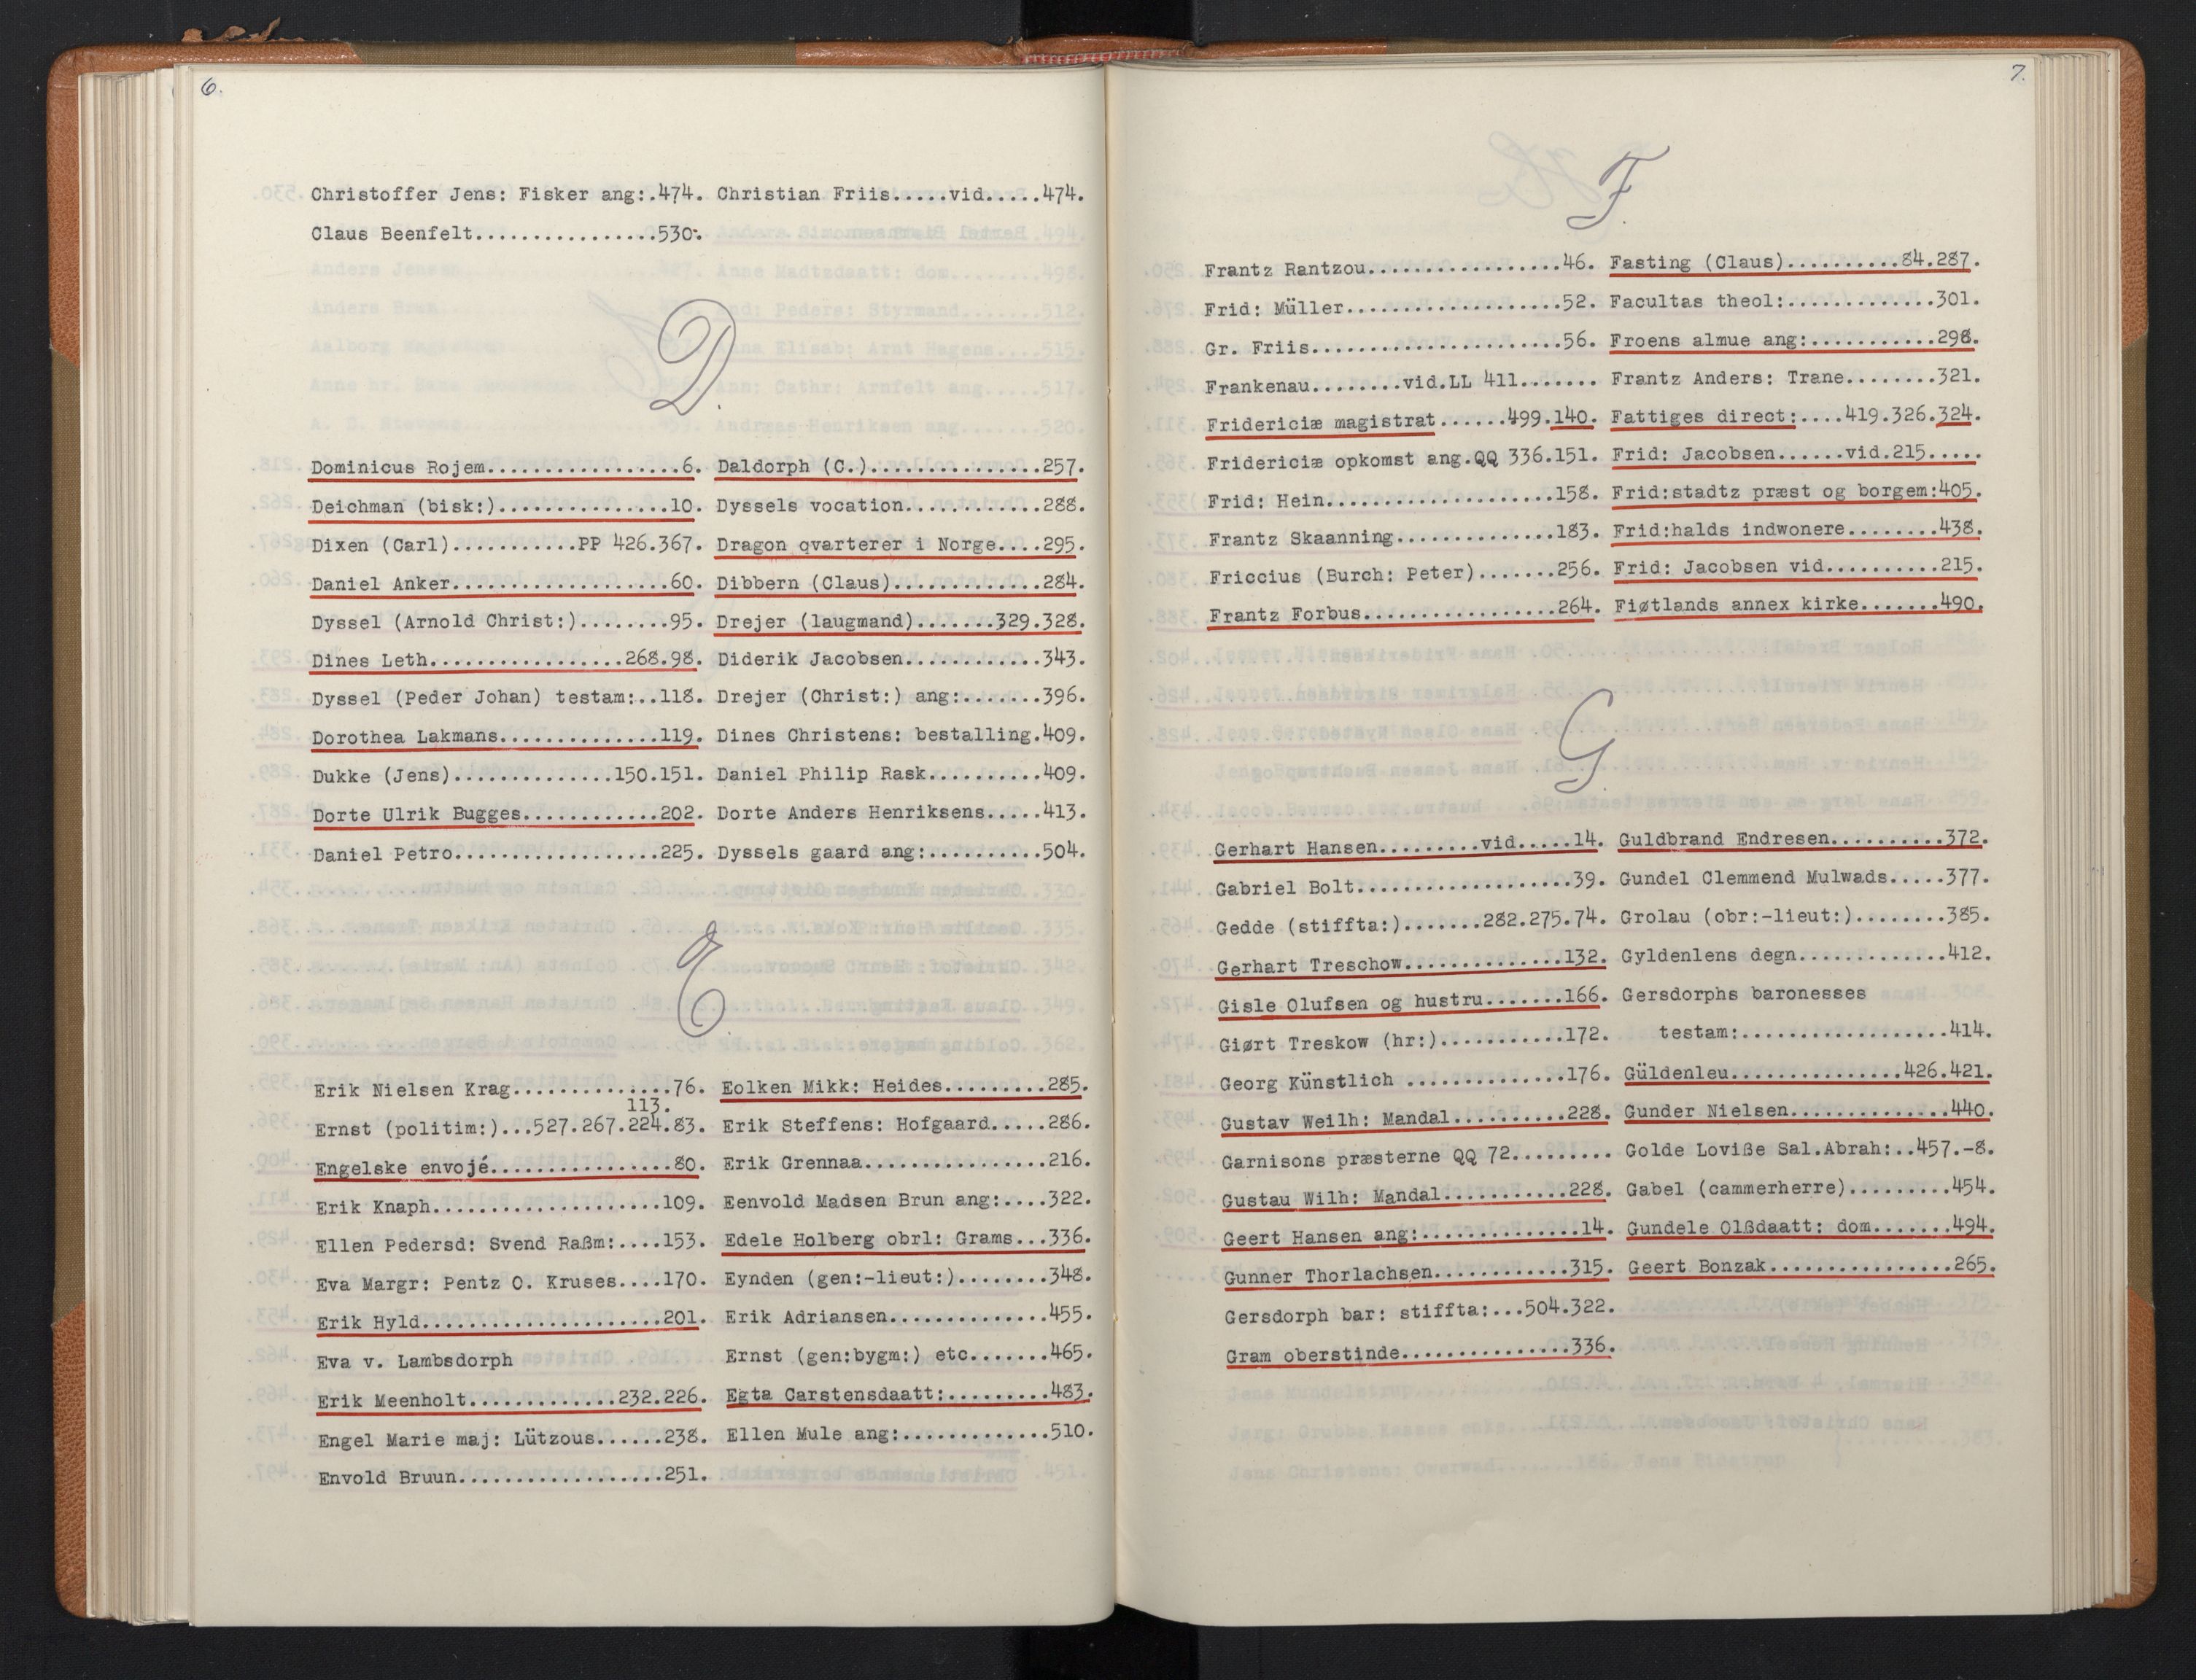 6.
Christoffer Jens: Fisker ang:.474.
Claus Beenfelt................530.
Christian Friis.....vid.....474.
D.
Dominicus Rojem.................6.
Deichman (bisk:)...............10.
Dixen (Carl)...........PP 426.367.
Daniel Anker...................60.
Dyssel (Arnold Christ:)........95.
Dines Leth.................268.98.
Dyssel (Peder Johan) testam:..118.
Dorothea Lakmans..............119.
Dukke (Jens)..............150.151.
Dorte Ulrik Bugges............202.
Daniel Petro..................225.
Daldorph (C.)...............257.
Dyssels vocation............288.
Dragon qvarterer i Norge....295.
Dibbern (Claus).............284.
Drejer (laugmand).......329.328.
Diderik Jacobsen............343.
Drejer (Christ:) ang:.......396.
Dines Christens: bestalling.409.
Daniel Philip Rask..........409.
Dorte Anders Henriksens.....413.
Dyssels gaard ang:..........504.
E.
Erik Nielsen Krag..............76.
113.
Ernst (politim:)...527.267.224.83.
Engelske envojé................80.
Erik Knaph....................109.
Ellen Pedersd: Svend Raßm:....153.
Eva Margr: Pentz O. Kruses....170.
Erik Hyld.....................201.
Eva v. Lambsdorph
Erik Meenholt.............232.226.
Engel Marie maj: Lützous......238.
Envold Bruun..................251.
Eolken Mikk: Heides.........285.
Erik Steffens: Hofgaard.....286.
Erik Grennaa................216.
Eenvold Madsen Brun ang:....322.
Edele Holberg obrl: Grams...336.
Eynden (gen:-lieut:)........348.
Erik Adriansen..............455.
Ernst (gen:bygm:) etc.......465.
Egta Carstensdaatt:.........483.
Ellen Mule ang:.............510.
7.
F.
Frantz Rantzou.................46.
Frid: Müller...................52.
Gr. Friis......................56.
Frankenau........vid.LL 411.......
Fridericiæ magistrat......499.140.
Fridericiæ opkomst ang.QQ 336.151.
Frid: Hein....................158.
Frantz Skaanning..............183.
Friccius (Burch: Peter).......256.
Frantz Forbus.................264.
Fasting (Claus)..........84.287.
Facultas theol:.............301.
Froens almue ang:...........298.
Frantz Anders: Trane........321.
Fattiges direct:....419.326.324.
Frid: Jacobsen......vid.215.....
Frid:stadtz præst og borgem:405.
Frid:halds indwonere........438.
Frid: Jacobsen vid..........215.
Fiøtlands annex kirke.......490.
G.
Gerhart Hansen.........vid.....14.
Gabriel Bolt...................39.
Gedde (stiffta:).......282.275.74.
Gerhart Treschow..............132.
Gisle Olufsen og hustru.......166.
Giørt Treskow (hr:)...........172.
Georg Künstlich ..............176.
Gustav Weilh: Mandal..........228.
Garnisons præsterne QQ 72.........
Gustau Wilh: Mandal...........228.
Geert Hansen ang:..............14.
Gunner Thorlachsen............315.
Gersdorph bar: stiffta:...504.322.
Gram oberstinde...............336.
Guldbrand Endresen..........372.
Gundel Clemmend Mulwads.....377.
Grolau (obr:-lieut:)........385.
Gyldenlens degn.............412.
Gersdorphs baronesses
testam:..................414.
Güldenleu...............426.421.
Gunder Nielsen..............440.
Golde Loviße Sal.Abrah:..457.-8.
Gabel (cammerherre).........454.
Gundele Olßdaatt: dom.......494.
Geert Bonzak................265.